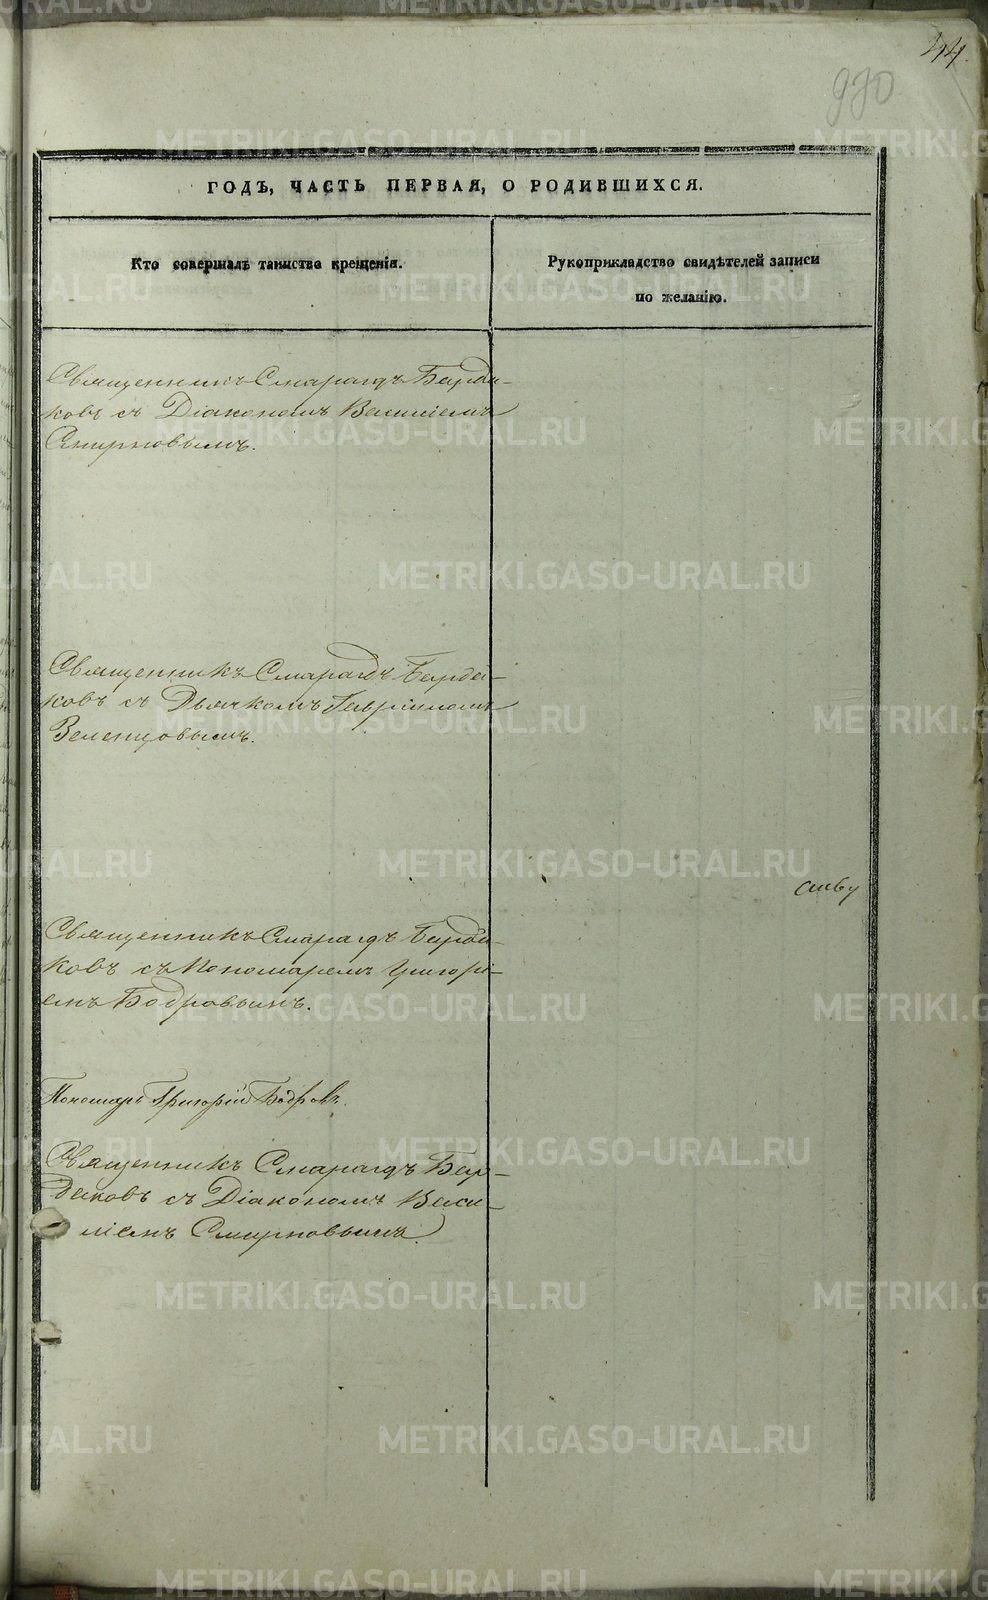 44.
930
ГОДЪ, ЧАСТЬ ПЕРВАЯ, О РОДИВШИХСЯ.
Кто совершалъ таинство крещенія.
Рукоприкладство свидѣтелей записи
по желанію.
Священникъ Смарагдъ Барда-
ковъ съ Діакономъ Василіемъ
Смирновымъ.
Священникъ Смарагдъ Барда-
ковъ съ Дьячкомъ Гавріиломъ
Земенцовымъ.
Священникъ Смарагдъ Барда-
ковъ съ Пономаремъ Григорі-
емъ Бодровымъ.
Пономарь Григорій Бодровъ.
Священникъ Смарагдъ Бар-
даковъ съ Діакономъ Васи-
ліемъ Смирновымъ
METRIKI.GASO-URAL.RU